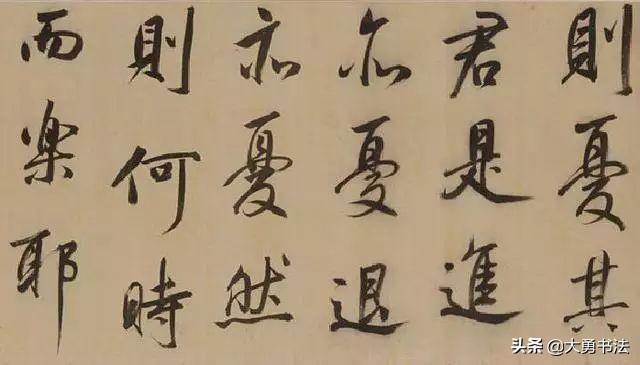 則憂其
君是進
亦憂退
亦憂然
則何時
而楽耶
头条 @大勇书法